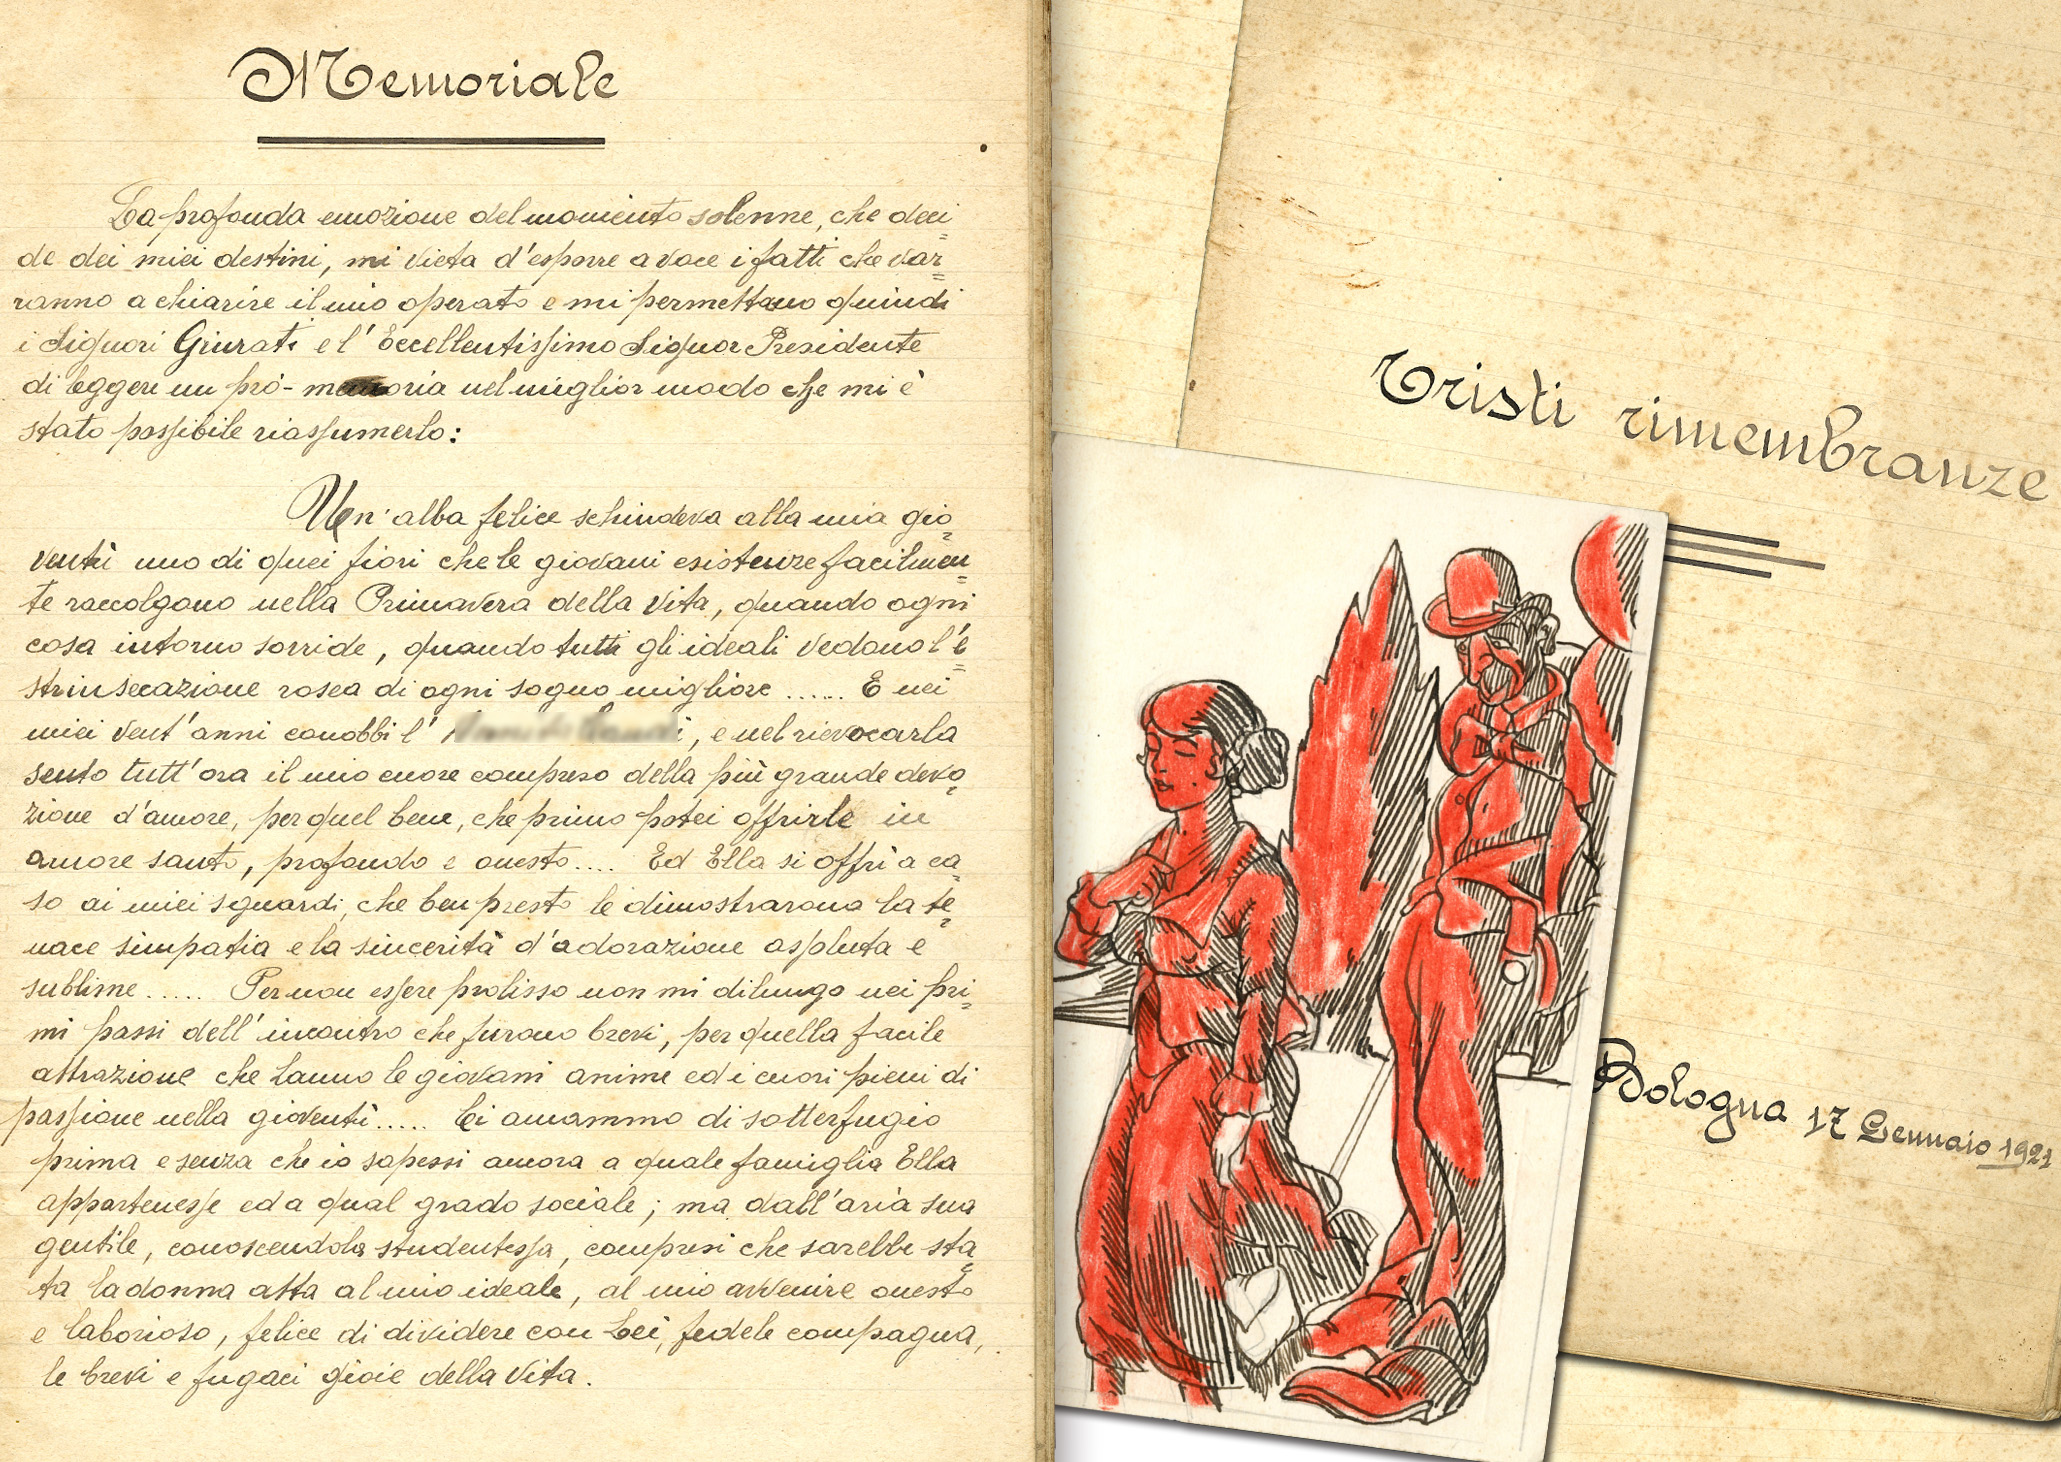 Memoriale
La profonda emozione del momento solenne, che deci=
de dei miei destini, mi vieta d'esporre a voce i fatti che var=
ranno a chiarire il mio operato e mi permettano quindi
i Signori Giurati e l'Eccellentissimo Signor Presidente
di leggere un prò-memoria nel miglior modo che mi è
stato possibile riassumerlo:
Un'alba felice schiudeva alla mia gio=
ventù uno di quei fiori che le giovani esistenze facilmen=
te raccolgono nella Primavera della vita, quando ogni
cosa intorno sorride, quando tutti gli ideali vedono l'e=
strinsecazione rosea di ogni sogno migliore ...... E nei
miei vent'anni conobbi l' , e nel rievocarla
sento tutt'ora il mio cuore compreso della più grande devo=
zione d'amore, per quel bene, che primo potei offrirle in
amore santo, profondo e onesto.... Ed Ella si offrì a ca=
so ai miei sguardi, che ben presto le dimostrarono la te=
nace simpatia e la sincerità d'adorazione aspluta e
sublime ..... Per non essere prolisso non mi dilungo nei pri=
mi passi dell'incontro che furono brevi, per quella facile
attrazione che hanno le giovani anime ed i cuori pieni di
passione nella gioventù..... Ci amammo di sotterfugio
prima e senza che io sapessi ancora a quale famiglia Ella
appartenesse ed a qual grado sociale; ma dall'aria sua
gentile, conoscendola studentessa, compresi che sarebbe sta=
ta la donna atta al mio ideale, al mio avvenire onesto
e laborioso, felice di dividere con Lei, fedele compagna,
le brevi e fugaci gioie della vita.
Tristi rimembranze
Bologna 17 Gennaio 1921